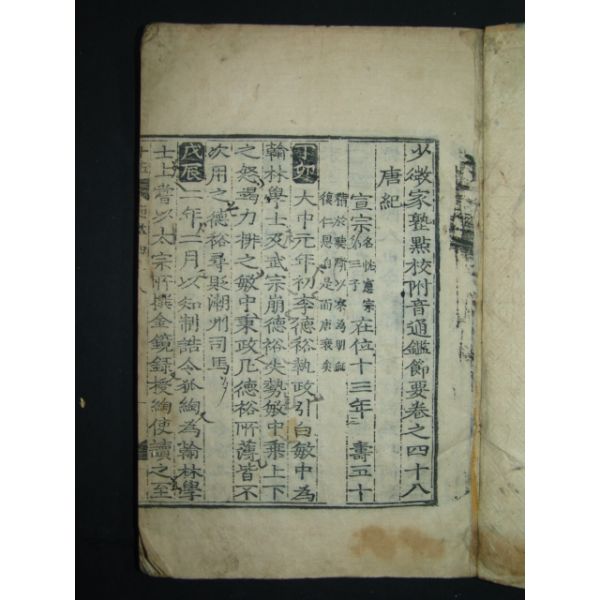 少微家塾點校附音通鑑節要卷之四十八
唐紀
宣宗名忱憲宗第三子在位十三年 壽五十
精於聽斷以察為明無復仁恩自是而唐衰矣
丁卯大中元年初李德裕執政引白敏中為
翰林學士及武宗崩德裕失勢敏中乘上下
之怒竭力排之敏中秉政凡德裕所薄皆不
次用之德裕尋貶潮州司馬
戊辰二年二月以知制誥令狐綯為翰林學
士上嘗以太宗所撰金鏡錄授綯使讀之至